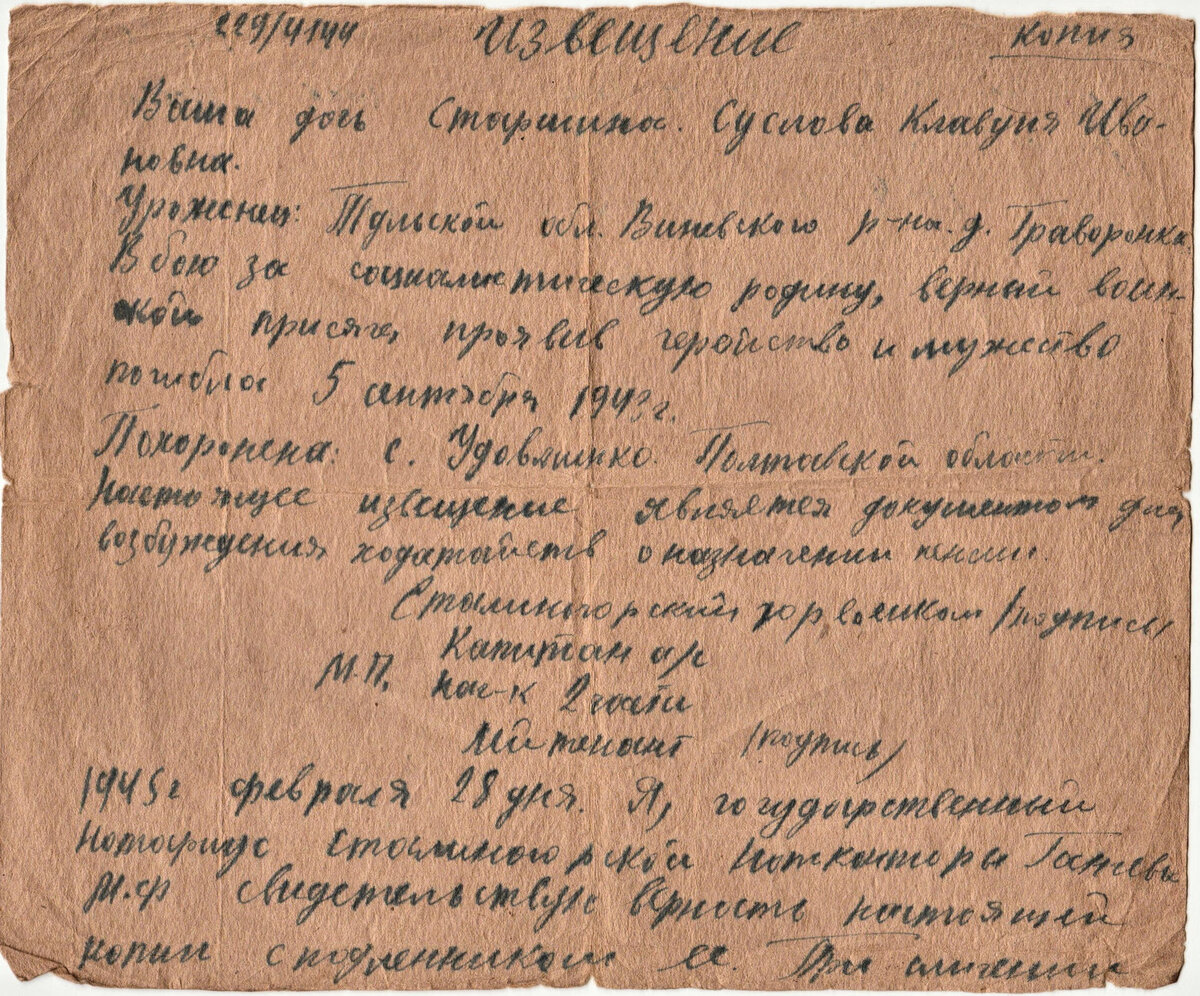 извещение копия
Ваша дочь Старшина. Суслова Клавдия Ива-
новна.
Уроженец: Тульской обл. Виневского р-на. д. Граворонка
В бою за социалистическую родину, верный воин-
ской присяге, проявив геройство и мужество
погибла 5 сентября 1943 г.
Похоронена: с. Полтавской области.
Настоящее извещение является документом для
возбуждения ходатайств о назначении пенсии.
Сталиногорский горвоенком /подпись/
Капитан а/с
М.П. нач-к 2 части
Лейтенант /подпись/
1945 г февраля 28 дня. Я, государственный
нотариус Сталиногорской Нотконторы
М.Ф свидетельствую верность настоящей
копии с подленником ее. При сличении